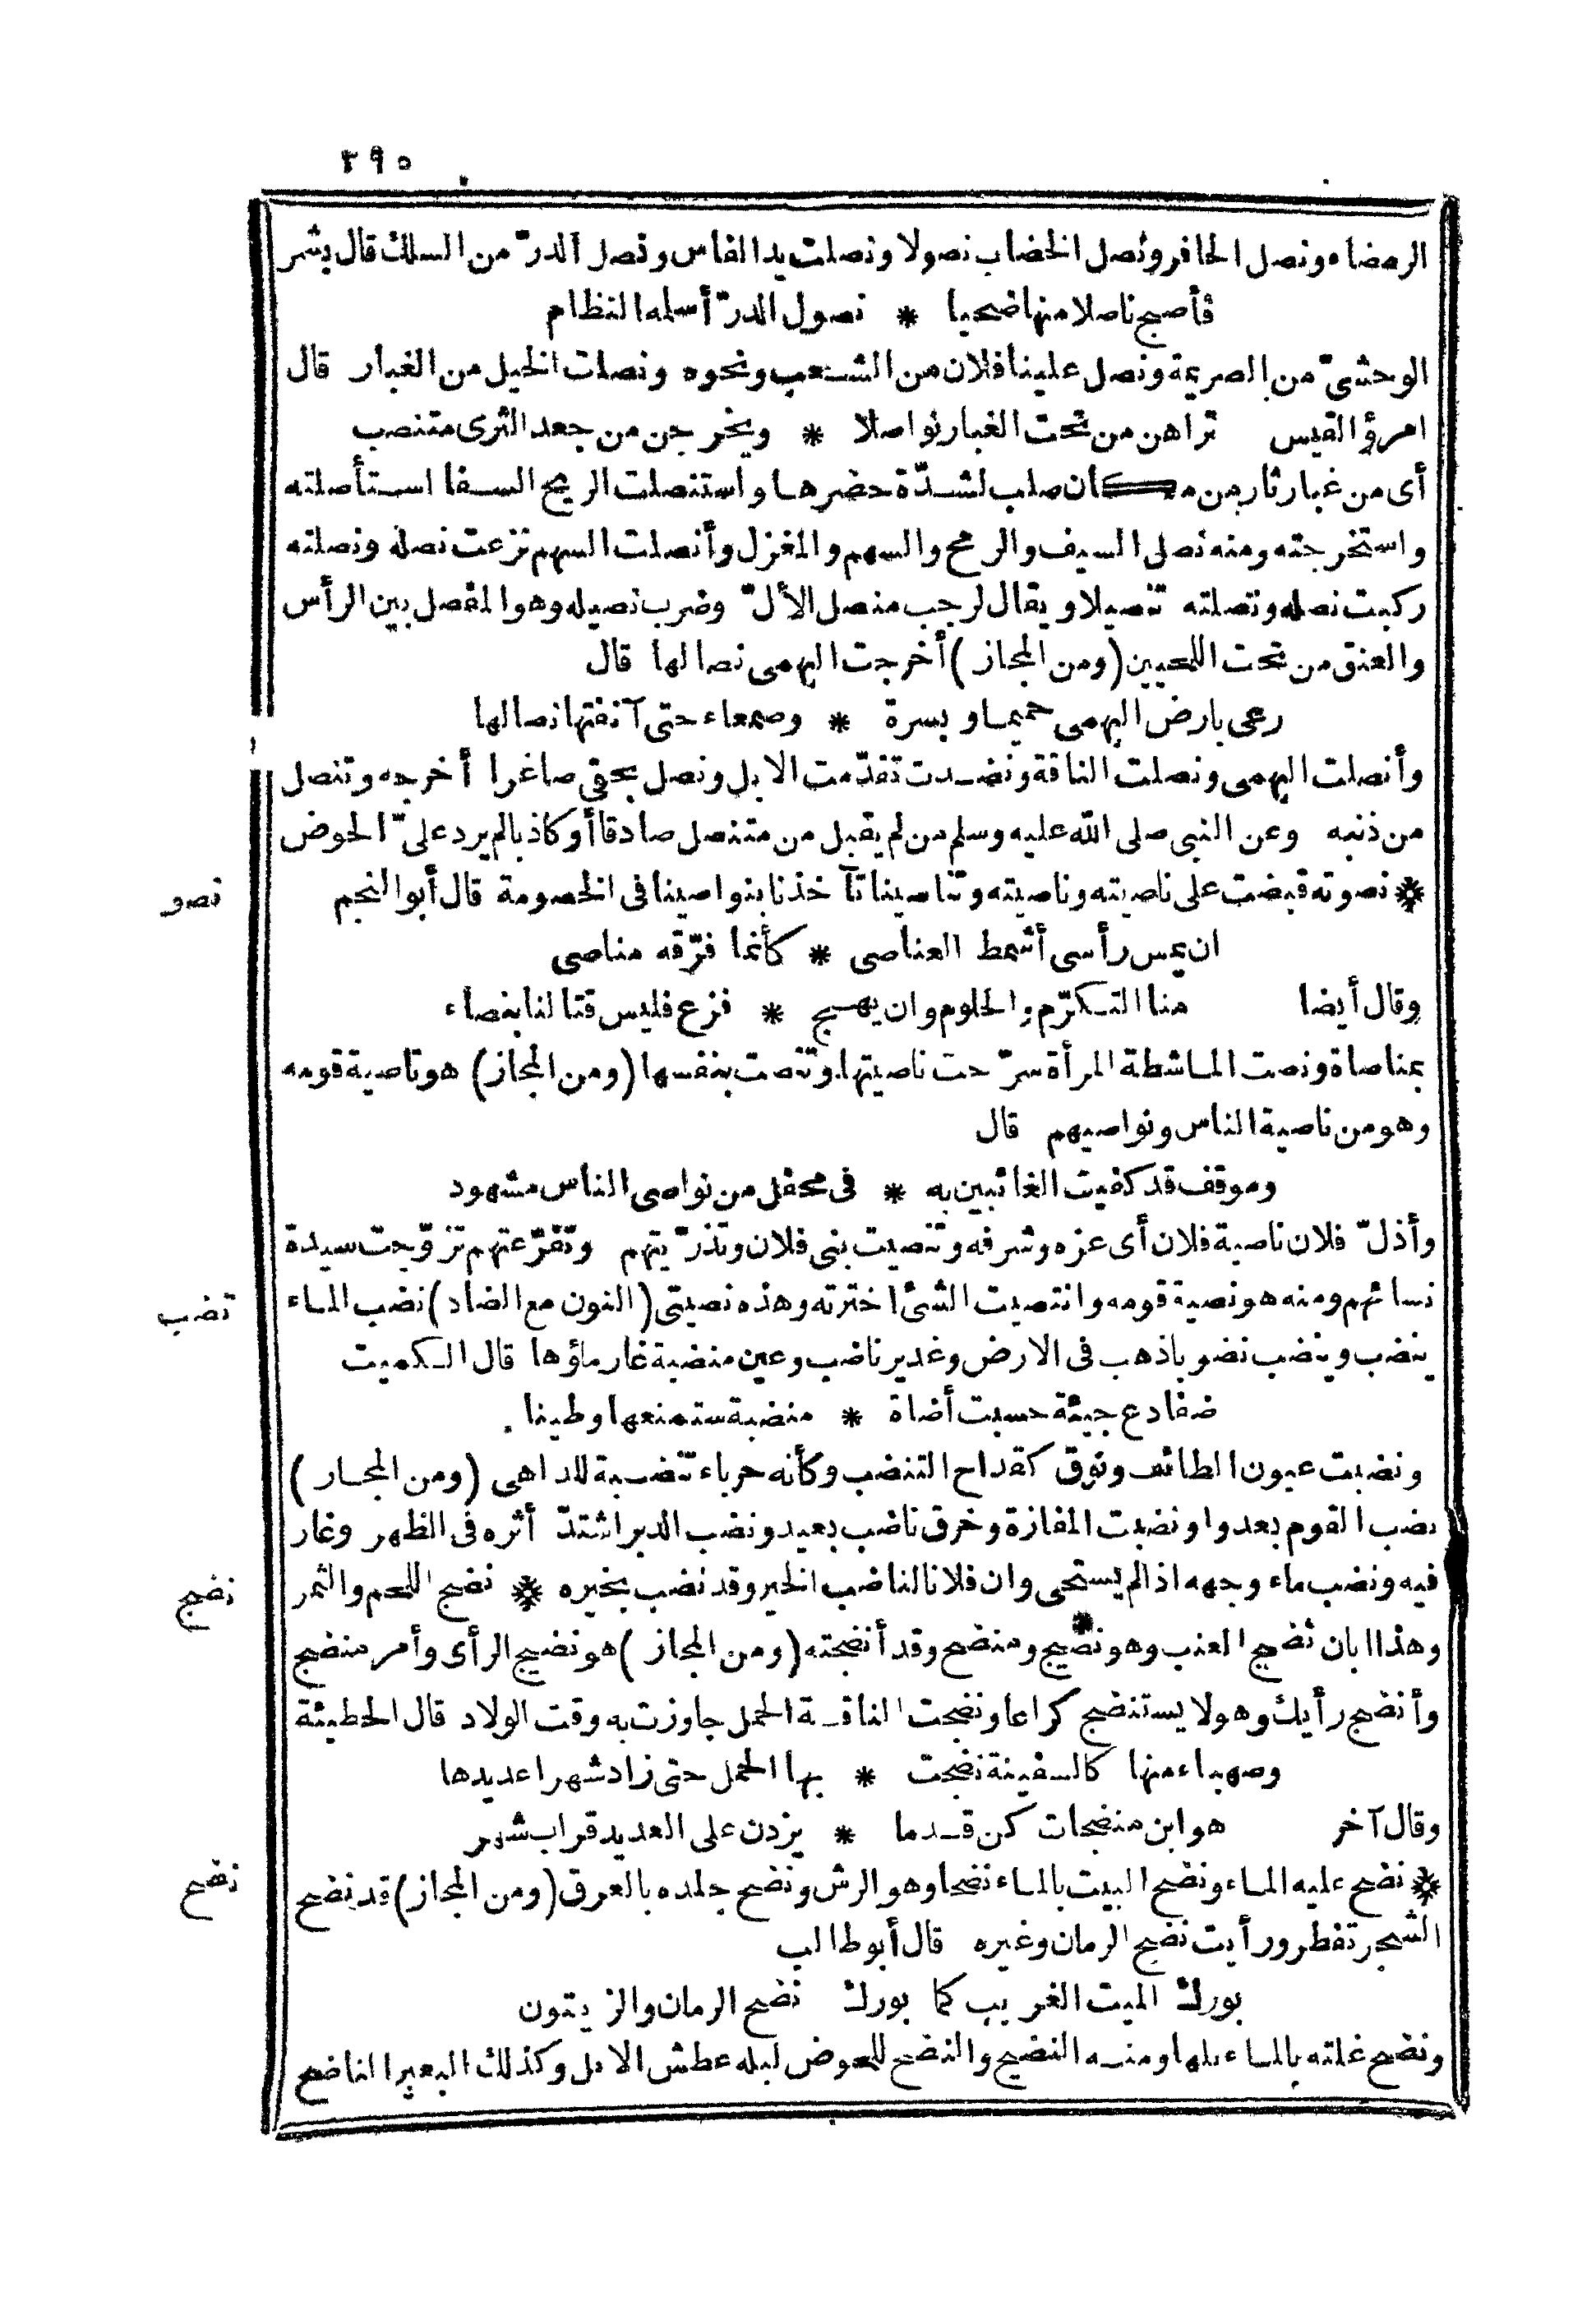 ٢٩٥
الرمضاء ونصل الحافر ونصل الخضاب نصولا ونصلت يد الفاس ونصل الدرّ من السلك قال بشر
فأصبح ناصلا منها ضحيا * نصول الدرّ أسلمه النظام
الوحشىّ من الصريمة ونصل علينا فلان من الشعب ونحوه ونصلت الخيل من الغبار قال
امرؤ القيس تراهن من تحت الغبار نواصلا * ويخرجن من جعد الثرى متنصب
أى من غبار ثار من مكان صلب لشدّة حضرها واستنصلت الريح السفا استأصلته
واستخرجته ومنه نصل السيف والرمح والسهم والمغزل وأنصلت السهم نزعت نصله ونصلته
ركبت نصله ونصلته تنصيلا ويقال لرجب منصل الألّ وضرب نصيله وهو المفصل بين الرأس
والعنق من تحت اللحيين (ومن المجاز) أخرجت البهمى نصالها قال
رعى بارض البهمى جميما وبسرة * وصمعاء حتى آنفتها نصالها
وأنصلت البهمى ونصلت الناقة ونضدت تقدّمت الابل ونصل بحقى صاغرا أخرجه وتنصل
من ذنبه وعن النبى صلى الله عليه وسلم من لم يقبل من متنصل صادقا أو كاذبا لم يرد علىّ الحوض
نصو
* نصوته قبضت على ناصيته وناصيته وتناصينا تآخذنا بنواصينا فى الخصومة قال أبو النجم
ان يمس رأسى أشمط العناصى * كأنما فرّقه مناصى
وقال أيضا منا التكرّم والحلوم وان يهج * فزع فليس قتالنا بنصاء
بمناصاة ونصت الماشطة المرأة سرّحت ناصيتها وتنصت بنفسها (ومن المجاز) هو ناصية قومه
وهو من ناصية الناس ونواصيهم قال
وموقف قد كفيت الغائبين به * فى محفل من نواصى الناس مشهود
وأذلّ فلان ناصية فلان أى عزه وشرفه وتنصيت بنى فلان وتذرّيتهم وتفرّعتهم تزوّجت سيدة
نضب
نسائهم ومنه هو نصية قومه وانتصيت الشئ اخترته وهذه نصيتى (النون مع الضاد) نضب الماء
ينضب وينضب نضوبا ذهب فى الارض وغدير ناضب وعين منضبة غار ماؤها قال الكميت
ضفادع جيئة حسبت أضاة * منضبة ستمنعها وطينا
ونضبت عيون الطائف ونوق كقداح التنضب وكأنه حرباء تنضبة للداهى (ومن المجاز)
نضب القوم بعدوا ونضبت المفازة وخرق ناضب بعيد ونضب الدبر اشتدّ أثره فى الظهر وغار
نضج
فيه ونضب ماء وجهه اذا لم يستحى وان فلانا لناضب الخير وقد نضب بخيره * نضج اللحم والثمر
وهذا ابان نضج العنب وهو نضيج ومنضج وقد أنضجته (ومن المجاز) هو نضيج الرأى وأمر منضج
وأنضج رأيك وهو لا يستنضج كراعا ونضجت الناقة الحمل جاوزت به وقت الولاد قال الحطيئة
وصهباء منها كالسفينة نضجت * بها الحمل حتى زاد شهرا عديدها
وقال آخر هو ابن منضجات كن قدما * يزدن على العديد قراب شهر
نضح
* نضح عليه الماء ونضح البيت بالماء نضحا وهو الرش ونضح جلده بالعرق (ومن المجاز) قد نضح
الشجر تفطر ورأيت نضح الرمان وغيره قال أبو طالب
بورك الميت الغريب كما بورك نضح الرمان والزيتون
ونضح غلته بالماء بلها ومنه النضيح والنضح للحوض لبله عطش الابل وكذلك البعير الناضح